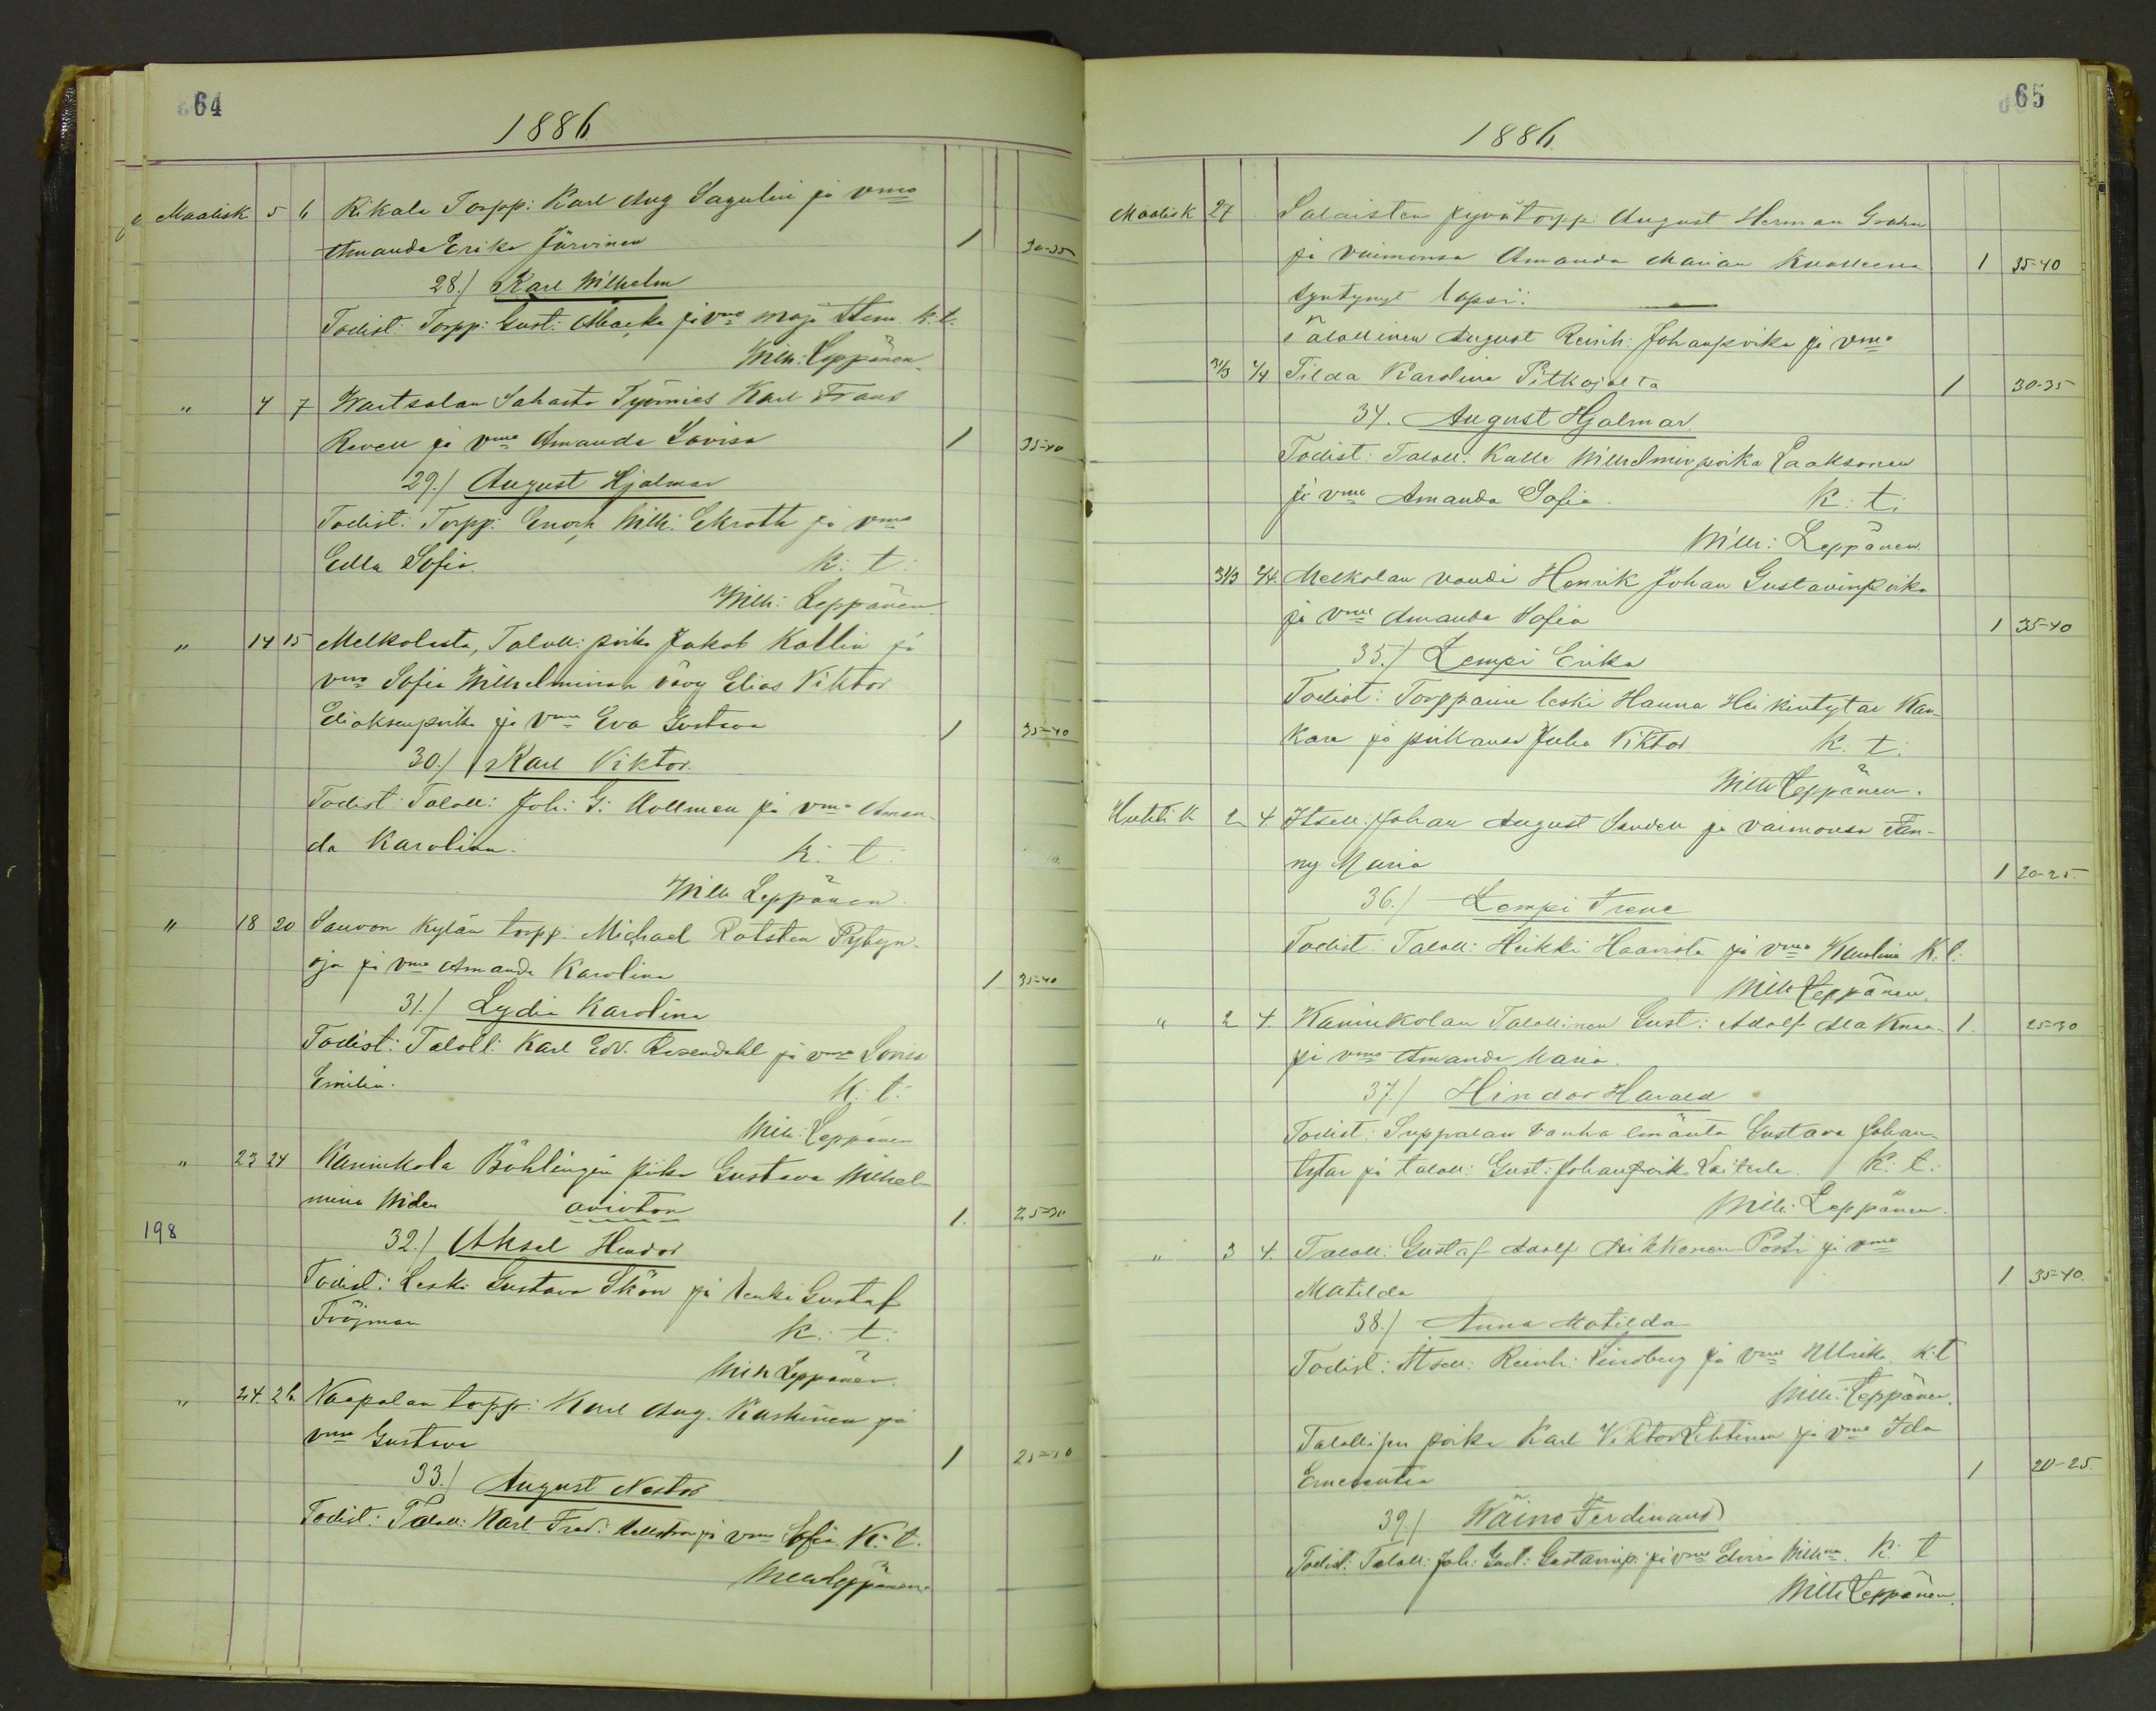 64
1886
Maalisk 5 6 Rikala Torpp: Karl Aug Sagulin ja vmo
Amanda Erika Järvinen 1 30-35
28.) Karl Wilhelm
Todist: Torpp: Gust: ja vmo Maja k.t.
Wilh: Leppänen
" 4 7 Wartsalan Sahasta Työmies Karl Frans
Revell ja vmo Amanda Lovisa 1 35-40
29.) August Hjalmar
Todist: Torpp: Enoch Wilh: Ekroth ja vmo
Edla Sofia. k: t:
Wilh: Leppänen
" 14 15 Melkolasta, Taloll: poika Jakob Kallin ja
vmo Sofia Wilhelminan vävy Elias Viktor
Eliaksenpoika ja vmo Eva Gustava 1 35-40
30.) Karl Viktor.
Todist: Taloll: Joh: G: Kollman ja vmo Aman-
da Karolina. k: t:
Wilh Leppänen
" 18 20 Sauvon kylän torpp. Michael Rotsten Pyhyn-
oja ja vmo Amanda Karolina 1 35-40
31.) Lydia Karolina
Todist: Taloll: Karl Edv. Rosendahl ja vmo Lovisa
Emilia. k: t:
Wilh: Leppänen
" 23 24 Karinkola Böhlingin piika Gustava Wilhel-
mina Widen avioton 1. 25-30
198
32.) Aksel Hendor
Todist: Leski Gustava Skön ja renki Gustaf
Fröjman k: t:
Wilh Leppänen.
" 24. 26 Naapalan torpp: Karl Aug. Kaskinen ja
vmo Gustava 1 25-30
33.) August Nestor
Todist: Taloll: Karl Fred: Hellström ja vmo Sofia. k: t.
Wilh Leppänen
65
1886.
Maalisk 27 Salaisten torpp: August Herman Grahn
ja vaimonsa Amanda Marian kuolleena 1 35-40
syntynyt lapsi:
Talollinen August Reinh: Johanpoika ja vmo
31/3 2/4 Tilda Karolina Pitkojalta 1 30-35
34. August Hjalmar
Todist: Taloll: Kalle Wilhelminpoika Laaksonen
ja vmo Amanda Sofia. k: t:
Wilh: Leppänen.
31/3 2/4. Melkolan voudi Henrik Johan Gustavinpoika
ja vmo Amanda Sofia 1 35-40
35.) Lempi Erika
Todist: Torpparin leski Hanna Heikintytar Kan-
kare ja poikansa Juho Viktor k: t:
Wilh Leppänen.
Huhtik 2 4. Itsell: Johan August Sandell ja vaimonsa Fan-
ny Maria 1 20-25.
36.) Lempi Irene
Todist: Taloll: Heikki Haavisto ja vmo Karolina k: t:
Wilh Leppänen.
" 2 4. Karinkolan Talollinen Gust: Adolf 1. 25-30
ja vmo Amanda Maria.
37.) Hindor Harald
Todist: Suppalan vanha emäntä Gustava Johan-
tytar ja taloll: Gust: Johanpoik. Laiterla. k: t:
Wilh: Leppänen.
" 3 4. Taloll: Gustaf Adolf Mikkonen Posti ja vmo
Matilda 1 35-40.
38.) Anna Matilda
Todist: Itsell: Reinh: Lindberg ja vmo Ulrika k: t
Wilh: Leppänen.
Talollisen poika Karl Viktor Lehtinen ja vmo Ida
Emerentia 1 20-25
39.) Wäino Ferdinand
Todist: Taloll: Joh: Gust: Gustavinp: ja vmo Wilhna. k: t
Wilh Leppänen.